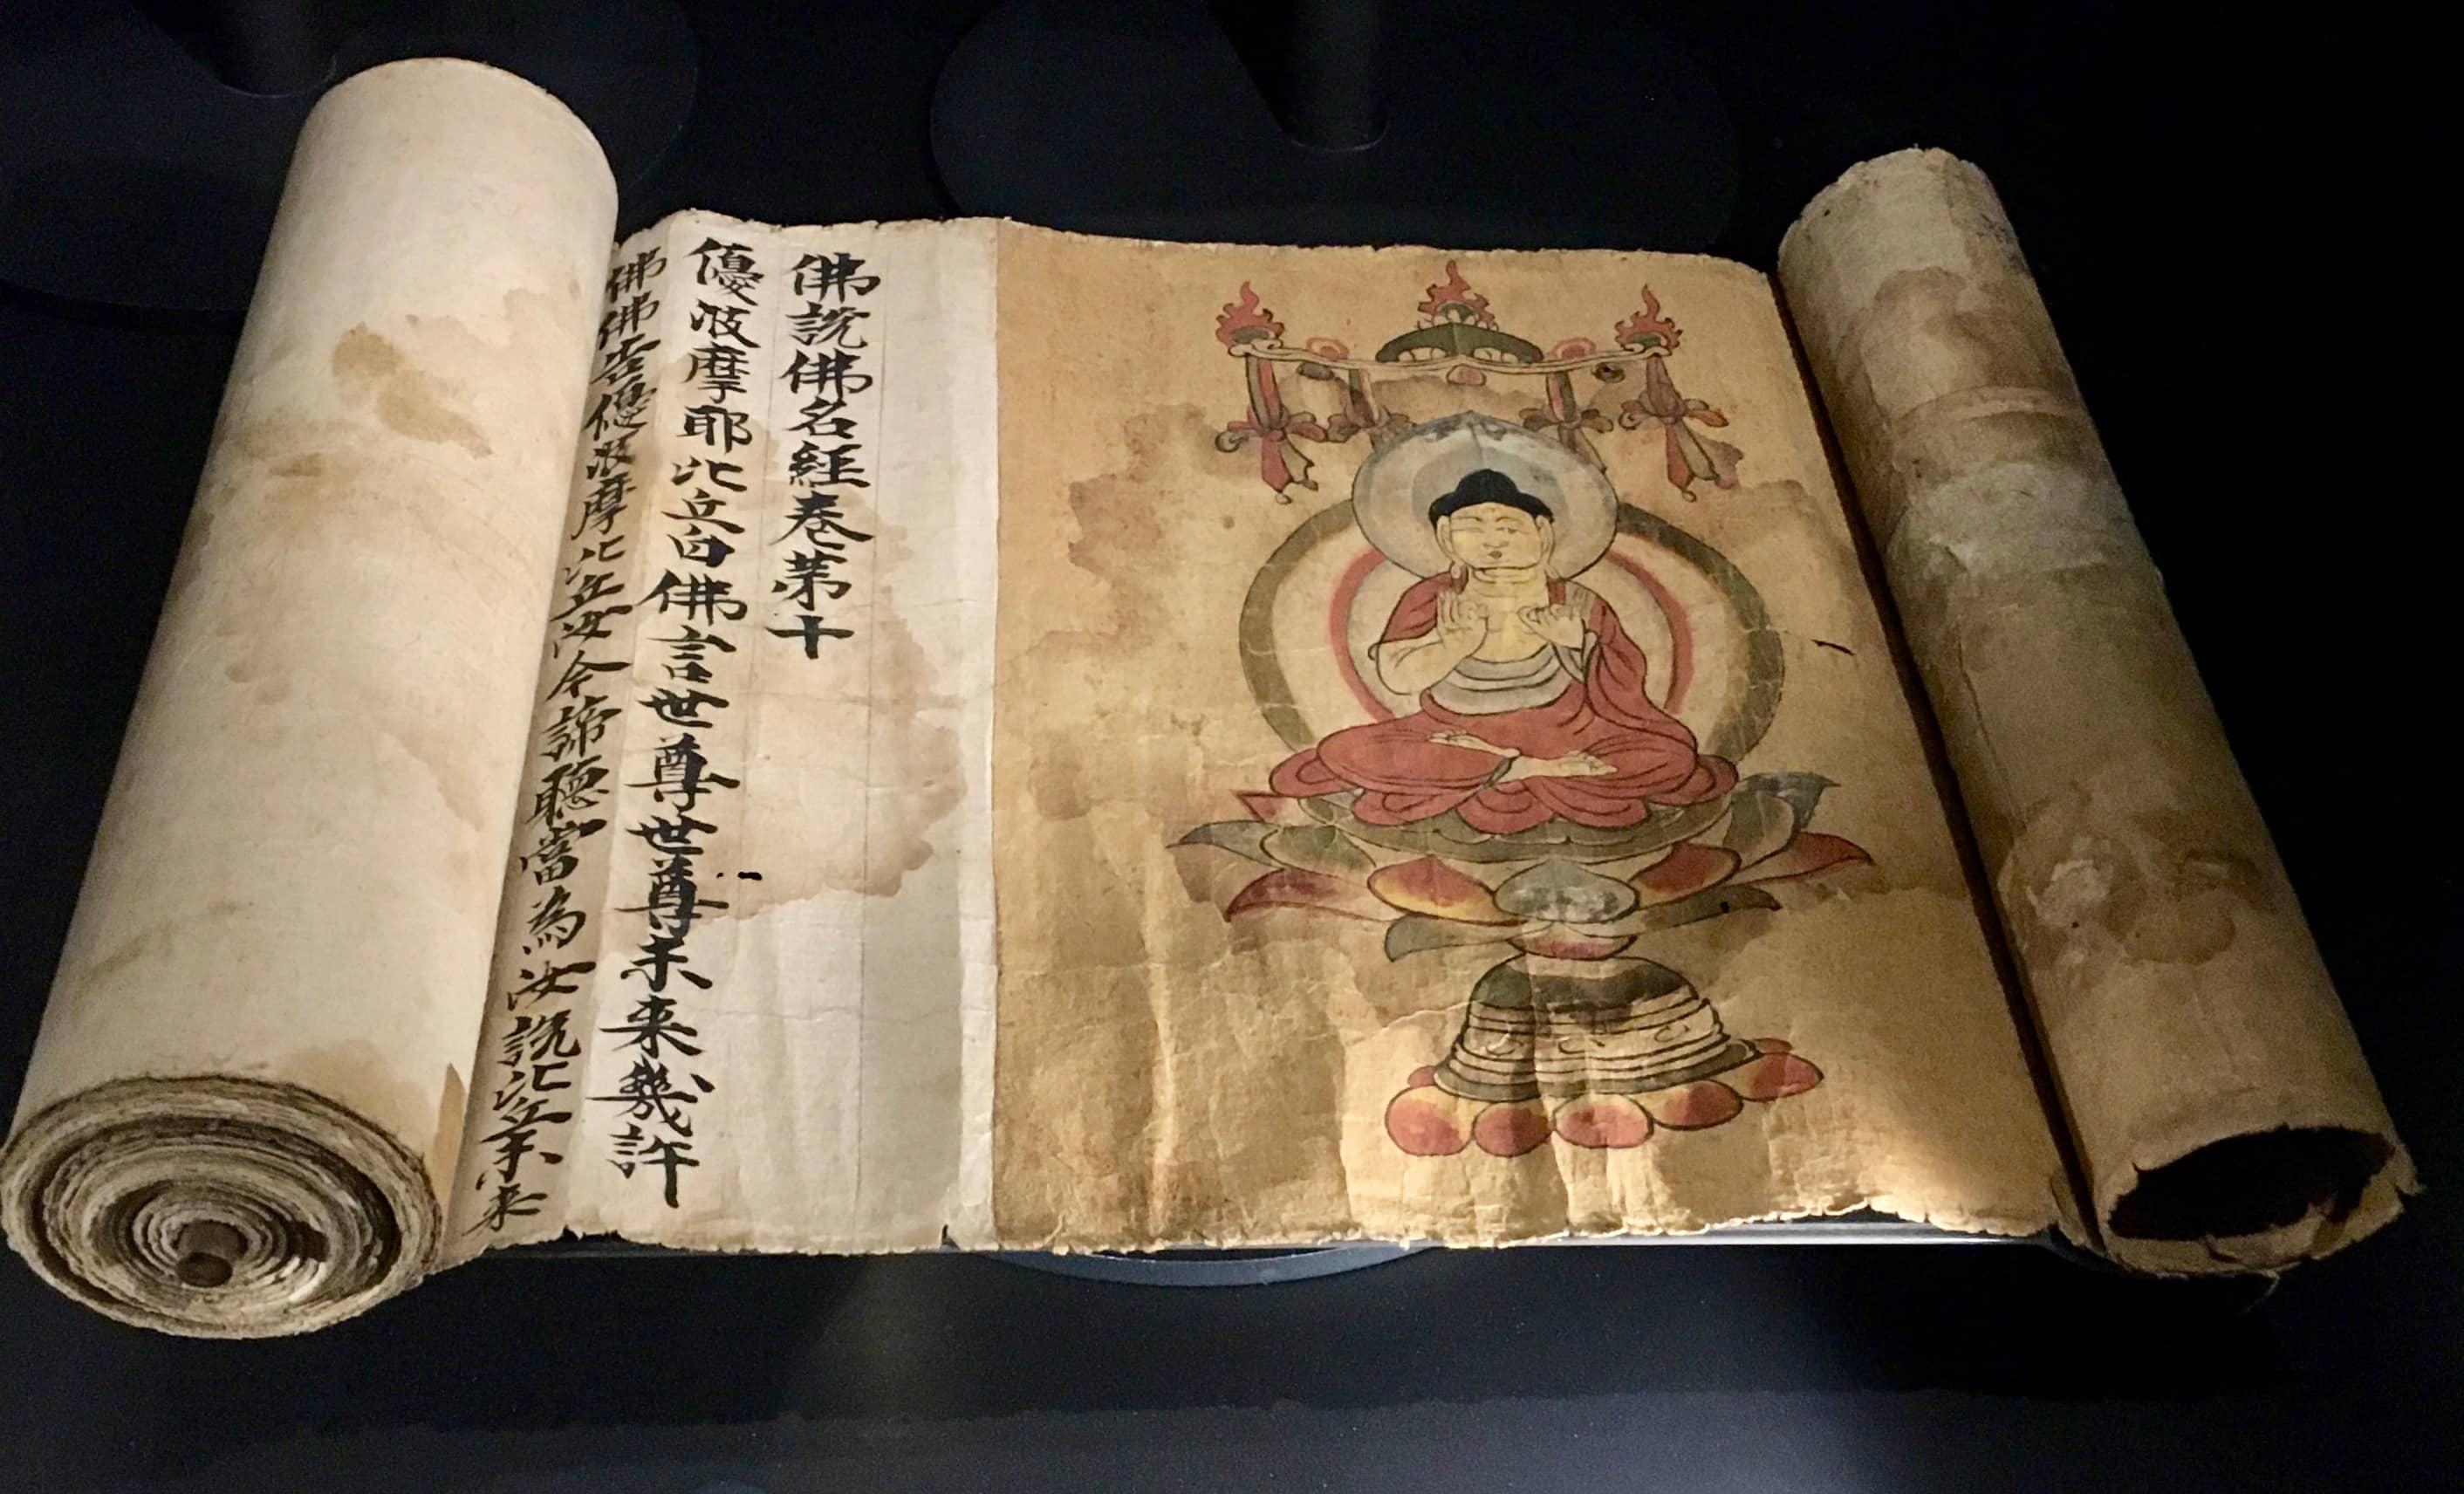 佛說佛名經卷苐十
優波摩耶比丘白佛言世尊世尊未来幾許
佛佛告優波摩比丘汝今諦聽當為汝說比丘未来